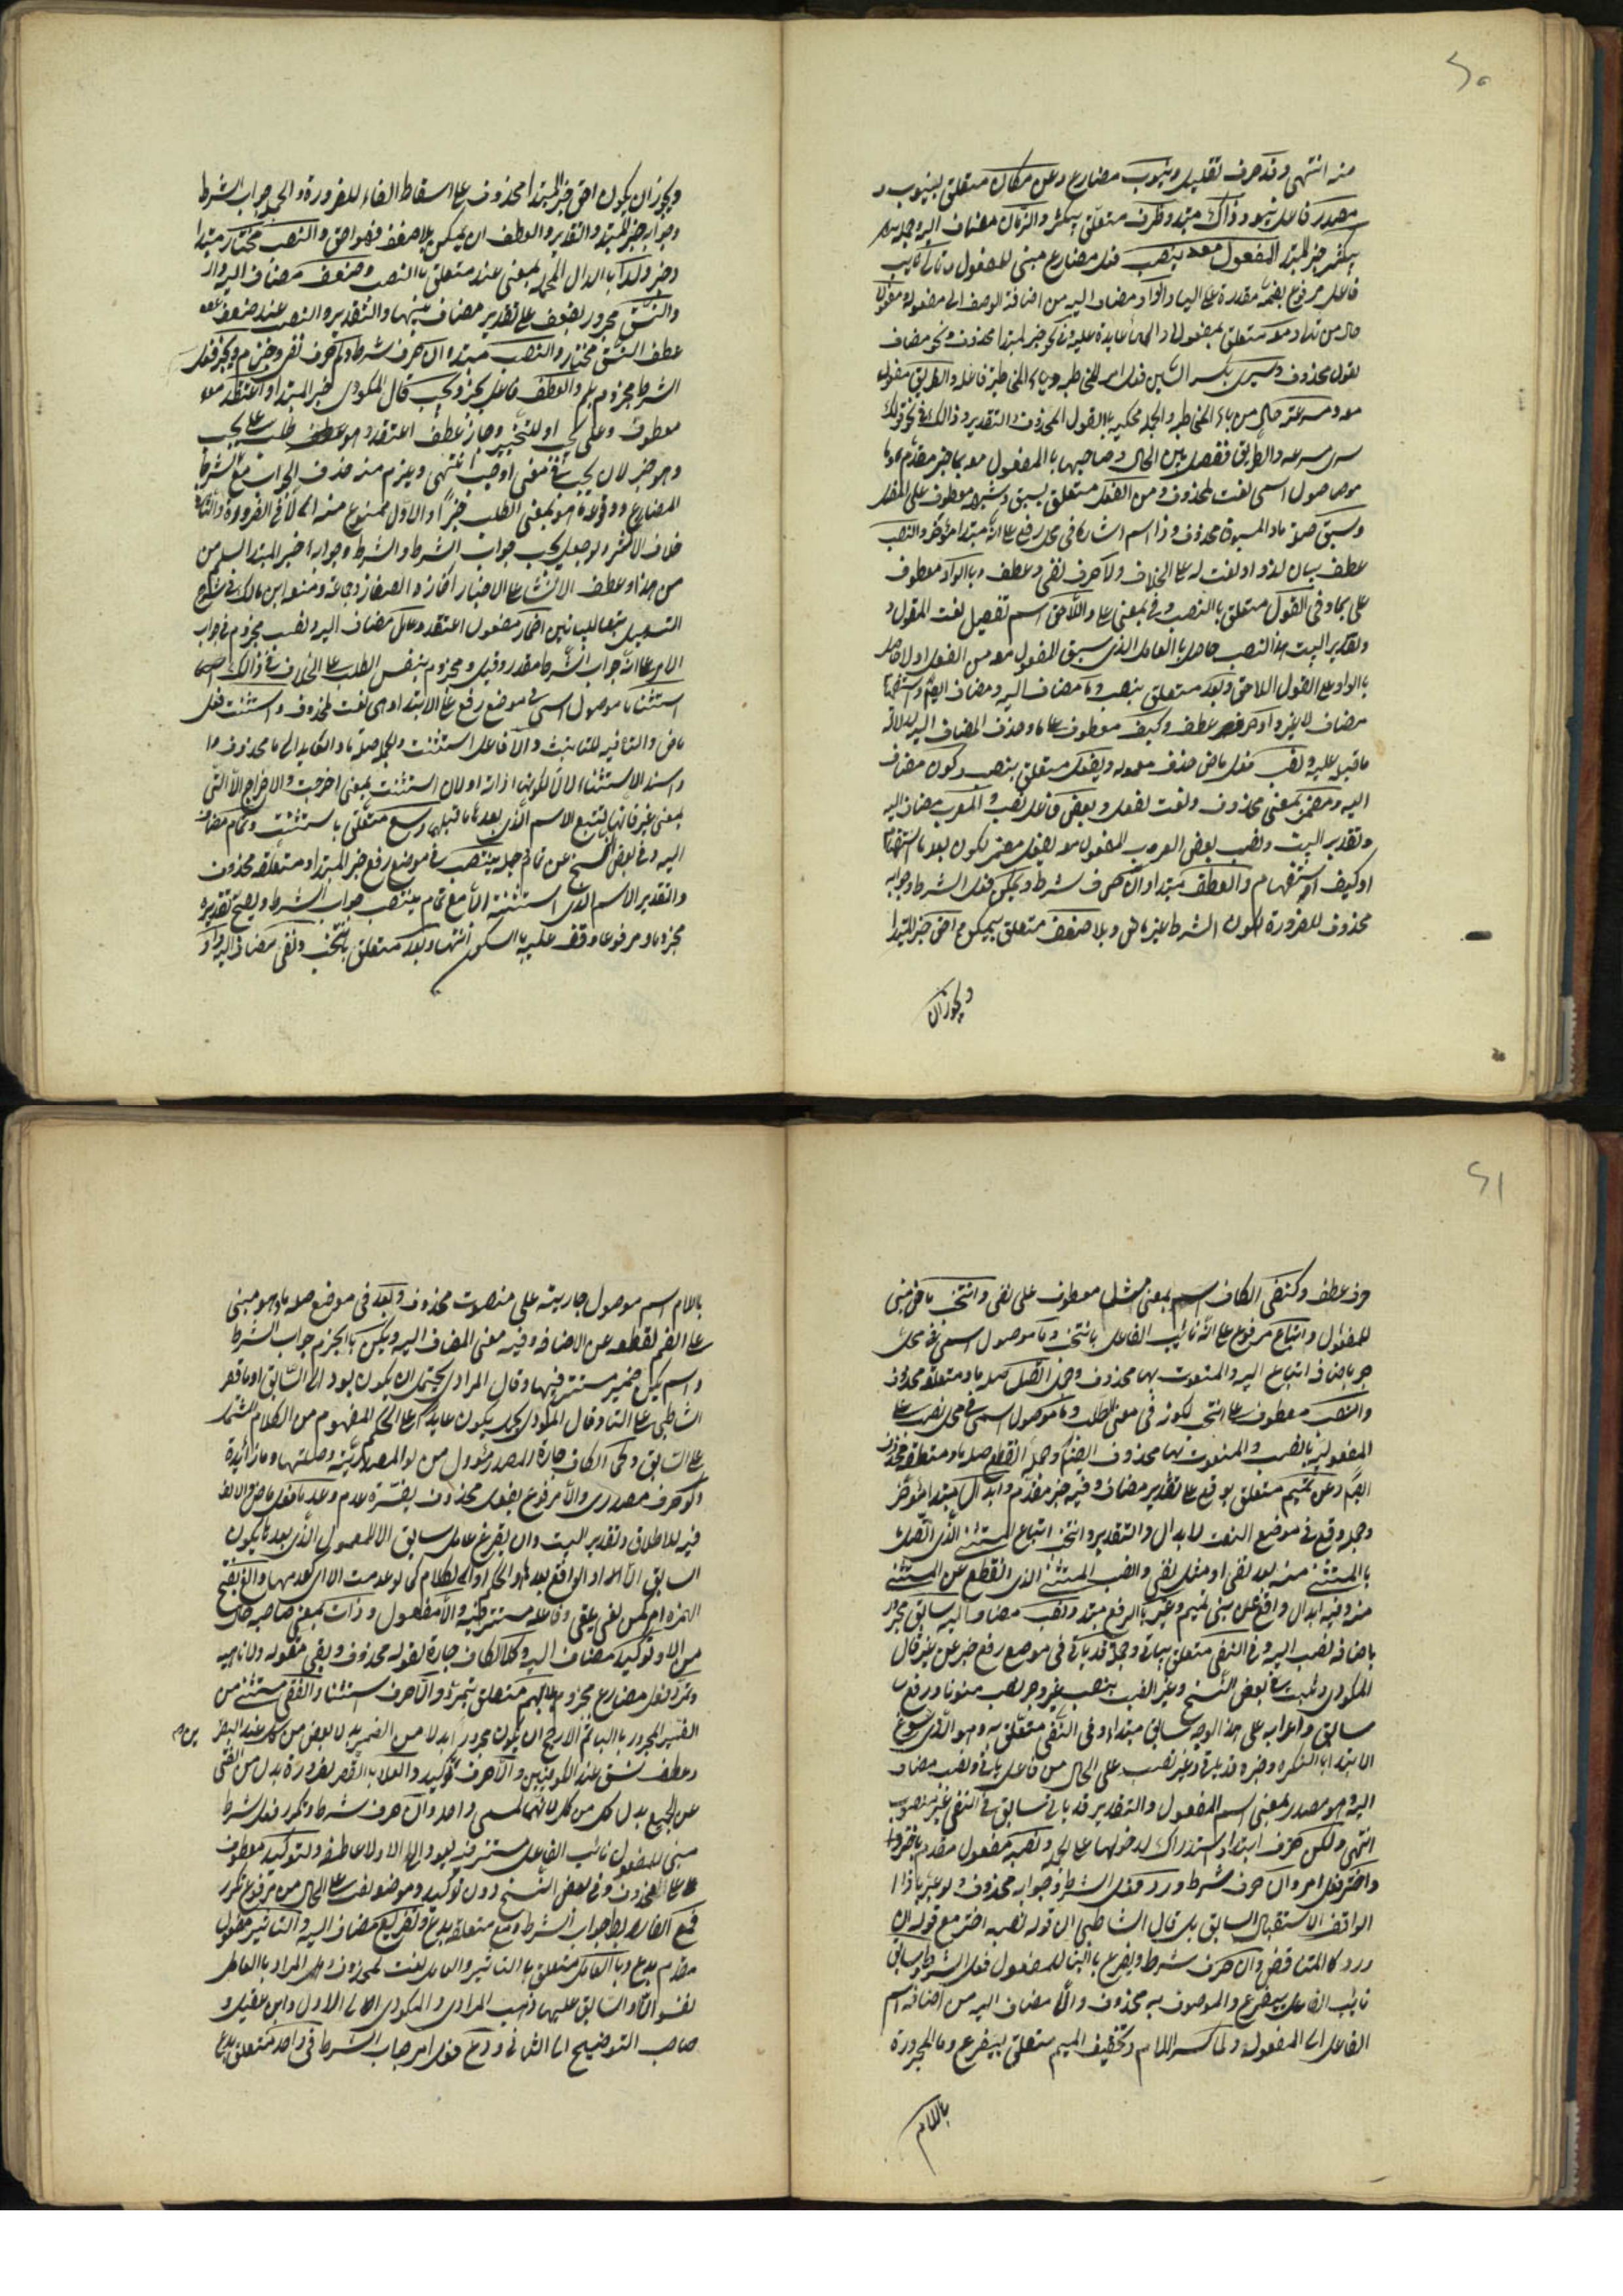 منه انتهى وقد حرف تقليل وينوب مضارع وعن مكان متعلق بينوب و
مصدر فاعل ينوب وذاك مبتدا وظرف متعلق بيكثر والزمان مضاف اليه وجملة
يكثر خبر المبتدا المفعول معه ينصب فعل مضارع مبنى للمفعول وتالى نايب
فاعل مرفوع بضمة مقدرة على اليا والواو مضاف اليه من اضافة الوصف الى مفعوله مفعول
حال من تالى ومعه متعلق بمفعولا والها عايدة عليه فى نحو خبر لمبتدا محذوف ونحو مضاف
لقول محذوف وسيرى بكسر السين فعل امر للمخاطبه وياء المخاطبة فاعله والطريق مفعول
معه ومسرعة حال من ياء المخاطبه والجملة محكيه بالقول المحذوف والتقدير وذالك فى نحو قولك
سيرى مسرعه والطريق ففصل بين الحال وصاحبها بالمفعول معه بما خبر مقدم وما
موصول اسمى نعت لمحذوف ومن الفعل متعلق بسبق وشبهه معطوف على الفعل
وسبق صلة ما والمسبوق محذوف وذا اسم اشاره فى محل رفع على انه مبتدا مؤخر والنصب
عطف بيان لذا او نعت له على الخلاف ولا حرف نفى وعطف وبالواو معطوف
على بما وفى القول متعلق بالنصب وفى بمعنى على والاحق اسم تفضيل نعت المقول و
وتقدير البيت هذا النصب حاصل بالعامل الذى سبق المفعول معه من الفعل او لا حاصل
بالواو على القول الاحق وبعد متعلق بنصب وما مضاف اليه ومضاف ايضا واستفهام
مضاف لا غير واو حرف عطف وكيف معطوف على ما وحذف المضاف اليه لدلالة
ما قبله عليه ونصب فعل ماض حذف معموله وبفعل متعلق بنصب وكون مضاف
اليه ومضمر بمعنى محذوف ونعت لفعل وبعض فاعل نصب والعرب مضاف اليه
وتقدير البيت ونصب بعض العرب المفعول معه بفعل مضمر لكون بعد ما استفهام
او كيف استفهام والعطف مبتدا وان حرف شرط ويمكن فعل الشرط وجوابه
محذوف للضرورة لكون الشرط غير ماض وبلا ضعف متعلق بيمكن واحق خبر المبتدا
ويجوز ان
ويجوز ان يكون احق خبر المبتدا محذوف على اسقاط الفاء للضرورة والجملة جواب الشرط
وجوابه خبر المبتدا والتقدير والعطف ان يمكن بلا ضعف فهو احق والنصب مختار مبتدا
وخبر ولدا بالدال المهمله بمعنى عند متعلق بالنصب وضعف مضاف اليه لدا
والنسق مجرور بضعف على تقدير مضاف بينهما والتقدير والنصب عند ضعف
عطف النسق مختار والنصب مبتدا وان حرف شرط ولم حرف نفى وجزم ويجز فعل
الشرط مجزوم بلم والعطف فاعل يجز ويجب قال المكودى خبر المبتدا او اعتقد
معطوف على يجب او للتخيير وجاز عطف اعتقد وهو طلب على يجب
وهو خبر لان يجب فى معنى اوجب انتهى ويلزم منه حذف الجواب مع الشرط
المضارع ووقوعه هو بمعنى الطلب خبرا والاول ممنوع منه الا فى الضرورة والثانى
خلاف الاكثر ولو جعل يجب جواب الشرط والشرط وجوابه خبر المبتدا لسلم من
من هذا وعطف الانشا على الاخبار اجازه الصفار وجماعة ومنعه ابن مالك فى شرح
التسهيل تبعا للبيانيين اضمار مفعول اعتقد وعامل مضاف اليه وتصب مجزوم فى جواب
الامر على انه جواب الشرط مقدر وقيل ومجزوم بنفس الطلب على الخلاف فى ذالك
استثنا ما موصول اسمى فى موضع رفع على الابتدا وهى نعت لمحذوف واستثنت فعل
ماض والتا فيه للتانيث والا فاعل استثنت والجملة صلة ما والعايد الى ما محذوف
واسند الاستثناء لا لكونها اداته او لان استثنت بمعنى اخرجت والاخراج الا التى
بمعنى غير فانها يتبع الاسم الذى بعدها ما قبلها ومع متعلق باستثنت وتمام مضاف
اليه وفى بعض النسخ عن تمام وجملة ينتصب فى موضع رفع خبر المبتدا ومتعلقه محذوف
والتقدير الاسم الذى استثنته الا مع تمام ينتصب جواب الشرط ويصح تقديره
مجزوما ومرفوعا وقف عليه بالسكون انتهى وبعد متعلق بانتخب ونفى مضاف اليه واو
حرف عطف وكنفى الكاف اسم بمعنى مثل معطوف على نفى وانتخب ماض مبنى
للمفعول واتباع مرفوع على انه نائب الفاعل بانتخب وما موصول اسمى فى محل
جر باضافه اتباع اليه والمنعوت بها محذوف وجملة اتصل صلة ما ومتعلقه محذوف
وانصب معطوف على انتخب لكونه فى معنى الطلب وما موصول اسمى فى محل نصب على
المفعولية بانصب والمنعوت بها محذوف ايضا وجملة انقطع صلة ما ومتعلقه محذوف
ايضا وعن تميم متعلق بوقع على تقدير مضاف وفيه خبر مقدم وابدال مبتدا مؤخر
وجملة وقع فى موضع النعت لابدال والتقدير وانتخب اتباع المستثنى الذى اتصل
بالمستثنى منه بعد نفى او مثل نفى وانصب المستثنى الذى انقطع عن المستثنى
منه وفيه ابدال واقع عن بنى تميم وغير بالرفع مبتدا ونصب مضاف اليه سابق مجرور
باضافه نصب اليه وفى النفى متعلق بياتى وجملة قد ياتى فى موضع رفع خبر عن غير قال
المكودى وثبت فى بعض النسخ وغير النصب بنصب غير وجر نصب منونا ورفع
سابق واعرابه على هذا الوجه سابق مبتدا وفى النفى متعلق به وهو الذى سوغ
الابتدا بالنكره وخبره قد ياتى وغير نصب على الحال من فاعل ياتى ونصب مضاف
اليه وهو مصدر بمعنى اسم المفعول والتقدير قد ياتى سابق فى النفى غير منصوب
انتهى ولكن حرف ابتدا واستدراك لدخولها على الجملة ونصبه مفعول مقدم باختر
واختر فعل امر وان حرف شرط وورد فعل الشرط وجوابه محذوف ولو عبر باذا
الواقفة الاستقبال السابق بل قال الشاطبى ان قوله نصبه اختر مع قوله ان
ورد كالمتناقض وان حرف شرط ويفرغ بالبنا للمفعول فعل الشرط وسابق
نايب الفاعل بيفرغ والموصوف به محذوف والا مضاف اليه من اضافه اسم
الفاعل الى المفعول ولما كسر اللام وتخفيف الميم متعلق بيفرغ وما المجرورة
باللام
باللام اسم موصول جارية على منصوت محذوف وبعد فى موضع صلة ما وهو مبنى
على الضم لقطعه عن الاضافه وفيه معنى المضاف اليه ويكن بالجزم جواب الشرط
واسم يكن ضمير مستتر فيها وقال المرادى يحتمل ان يكون يعود الى السابق او ما قصر
الشاطبى على الثانى وقال المكودى يكون عايد على الحكم المفهوم من الكلام
على السابق وكما الكاف جارة للمصدر المؤول من لو المصدرية وصلتها وما زائدة
ولو حرف مصدرى والا مرفوع بفعل محذوف يفسره عدم وعدما فعل ماض والالف
فيه للاطلاق وتقدير البيت وان يفرغ عامل سابق الا لمعمول الذى بعدها يكون
السابق الا او الواقع بعدها والحكم او الكلام كما لو عدمت الا اى كعدمها والغ بقطع
الهمزة امر من لغى يلغى وفاعله مستتر فيه والا مفعول وذات بمعنى صاحبه حال
من الا وتوكيد مضاف اليه وكلا الكاف جارة لقوله محذوف وبقى مقوله ولا ناهيه
وتمرر فعل مضارع مجزوم بلا وبهم متعلق بتمرر والا حرف استثنا والفتى مستثنى من
الضمير المجرور بالبا ثم الارجح ان يكون مجرورا بدلا من الضمير بدل بعض من كل عند البصر
يين
وعطف نسق عند الكوفيين والا حرف توكيد والعلا بالقصر لضرورة بدل من الفتى
عن الجميع بدل كل من كل لانهما لمسمى واحد وان حرف شرط وتكرر فعل شرط
مبنى للمفعول نائب الفاعل مستتر فيه يعود الى الا ولا عاطفه ولتوكيد معطوف
على المحذوف وفى بعض النسخ دون توكيد وموضعه نصب على الحال من مرفوع تكرر
فمع الفا رابط لجواب الشرط ومع متعلقه بدع وتفريغ مضاف اليه والتاثير مفعول
مقدم بدع وبالعامل متعلق بالتاثير والعامل نعت لمحذوف وهل المراد بالعامل
نفس الا او السابق عليها ذهب المرادى والمكودى الى الاول وابن عقيل و
صاحب التوضيح الى الثانى ودع فعل امر جواب الشرط وفى واحد متعلق بدع